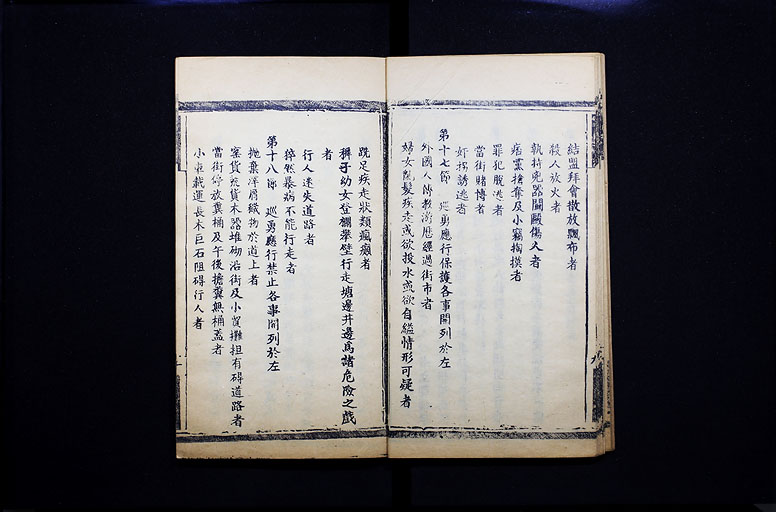 結盟拜會散放飄布者
殺人放火者
執持兇器鬬毆傷人者
痞棍搶奪及小竊掏摸者
罪犯脫逃者
當街賭博者
奸拐誘逃者
第十七節 巡勇應行保護各事開列於左
外國人傳教游歷經過街市者
婦女亂髮疾走或欲投水或欲自縊情形可疑者
跣足疾走狀類瘋癲者
穉子幼女登欄攀壁行走塘邊井邊爲諸危險之戲
者
行人迷失道路者
猝然暴病不能行走者
第十八節 巡勇應行禁止各事開列於左
拋棄渾屑穢物於道上者
窰貨瓷貨木器堆砌沿街及小貿攤担有碍道路者
當街停放糞桶及午後擔糞無桶蓋者
小車載運長木巨石阻碍行人者